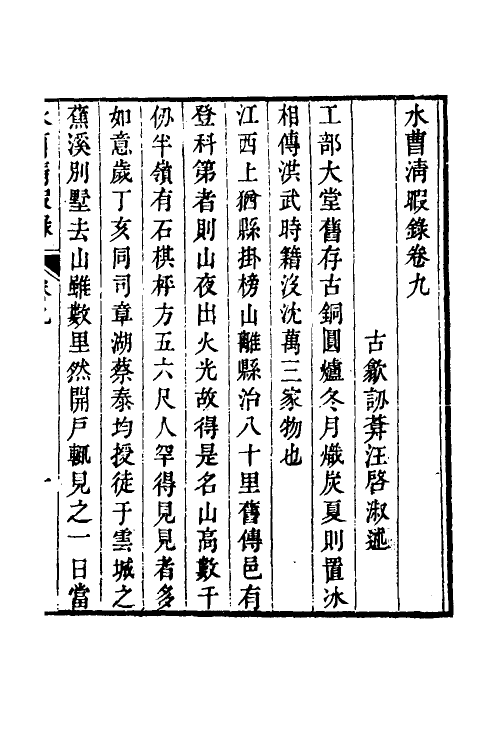 水曹清暇錄卷九
古歙訒葊汪啓淑述
工部大堂舊存古銅圓爐冬月熾炭夏則置冰
相傳洪武時籍沒沈萬三家物也
江西上猶縣掛榜山離縣治八十里舊傳邑有
登科第者則山夜出火光故得是名山高數千
仞半嶺有石棋枰方五六尺人罕得見見者多
如意歲丁亥同司章湖蔡泰均授徒于雲城之
蕉溪別墅去山雖數里然開戶輒見之一日當